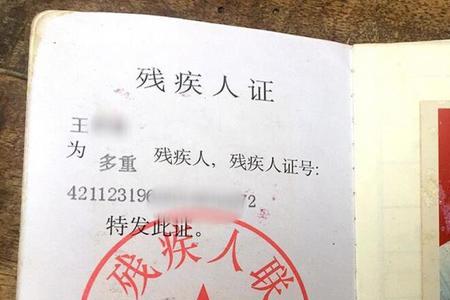 残疾人证
王
为 多重 残疾人，残疾人证号：
42112319672
特发此证。
残疾人联